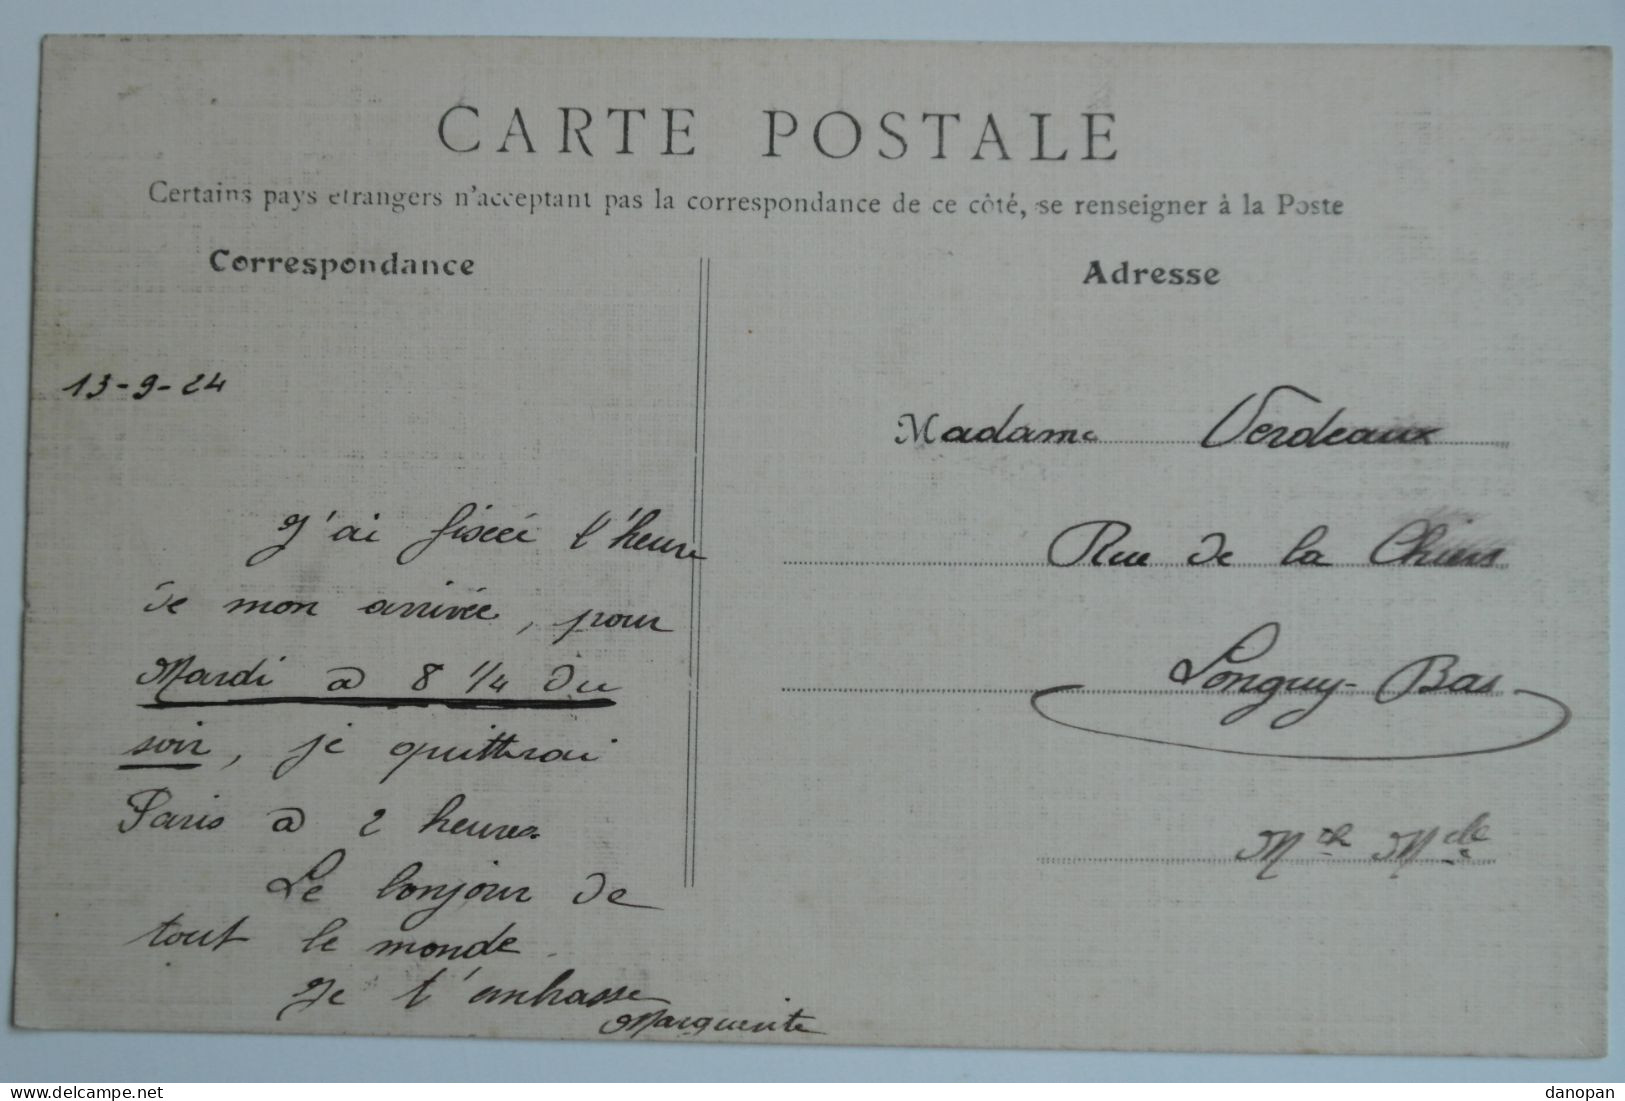 CARTE POSTALE
Certains pays etrangers n'acceptant pas la correspondance de ce côté, se renseigner à la Poste
Correspondance
Adresse
13-9-24
J'ai fixée l'heure
de mon arrivée, pour
Mardi a 8 1/4 du
soir, je quitterai
Paris a 2 heures.
Le bonjour de
tout le monde.
Je t'embrasse
Marguerite
Madame Verdeaux
Rue de la Chiers
Longuy-Bas
Mthe Mlle
delcampe.net
danopan